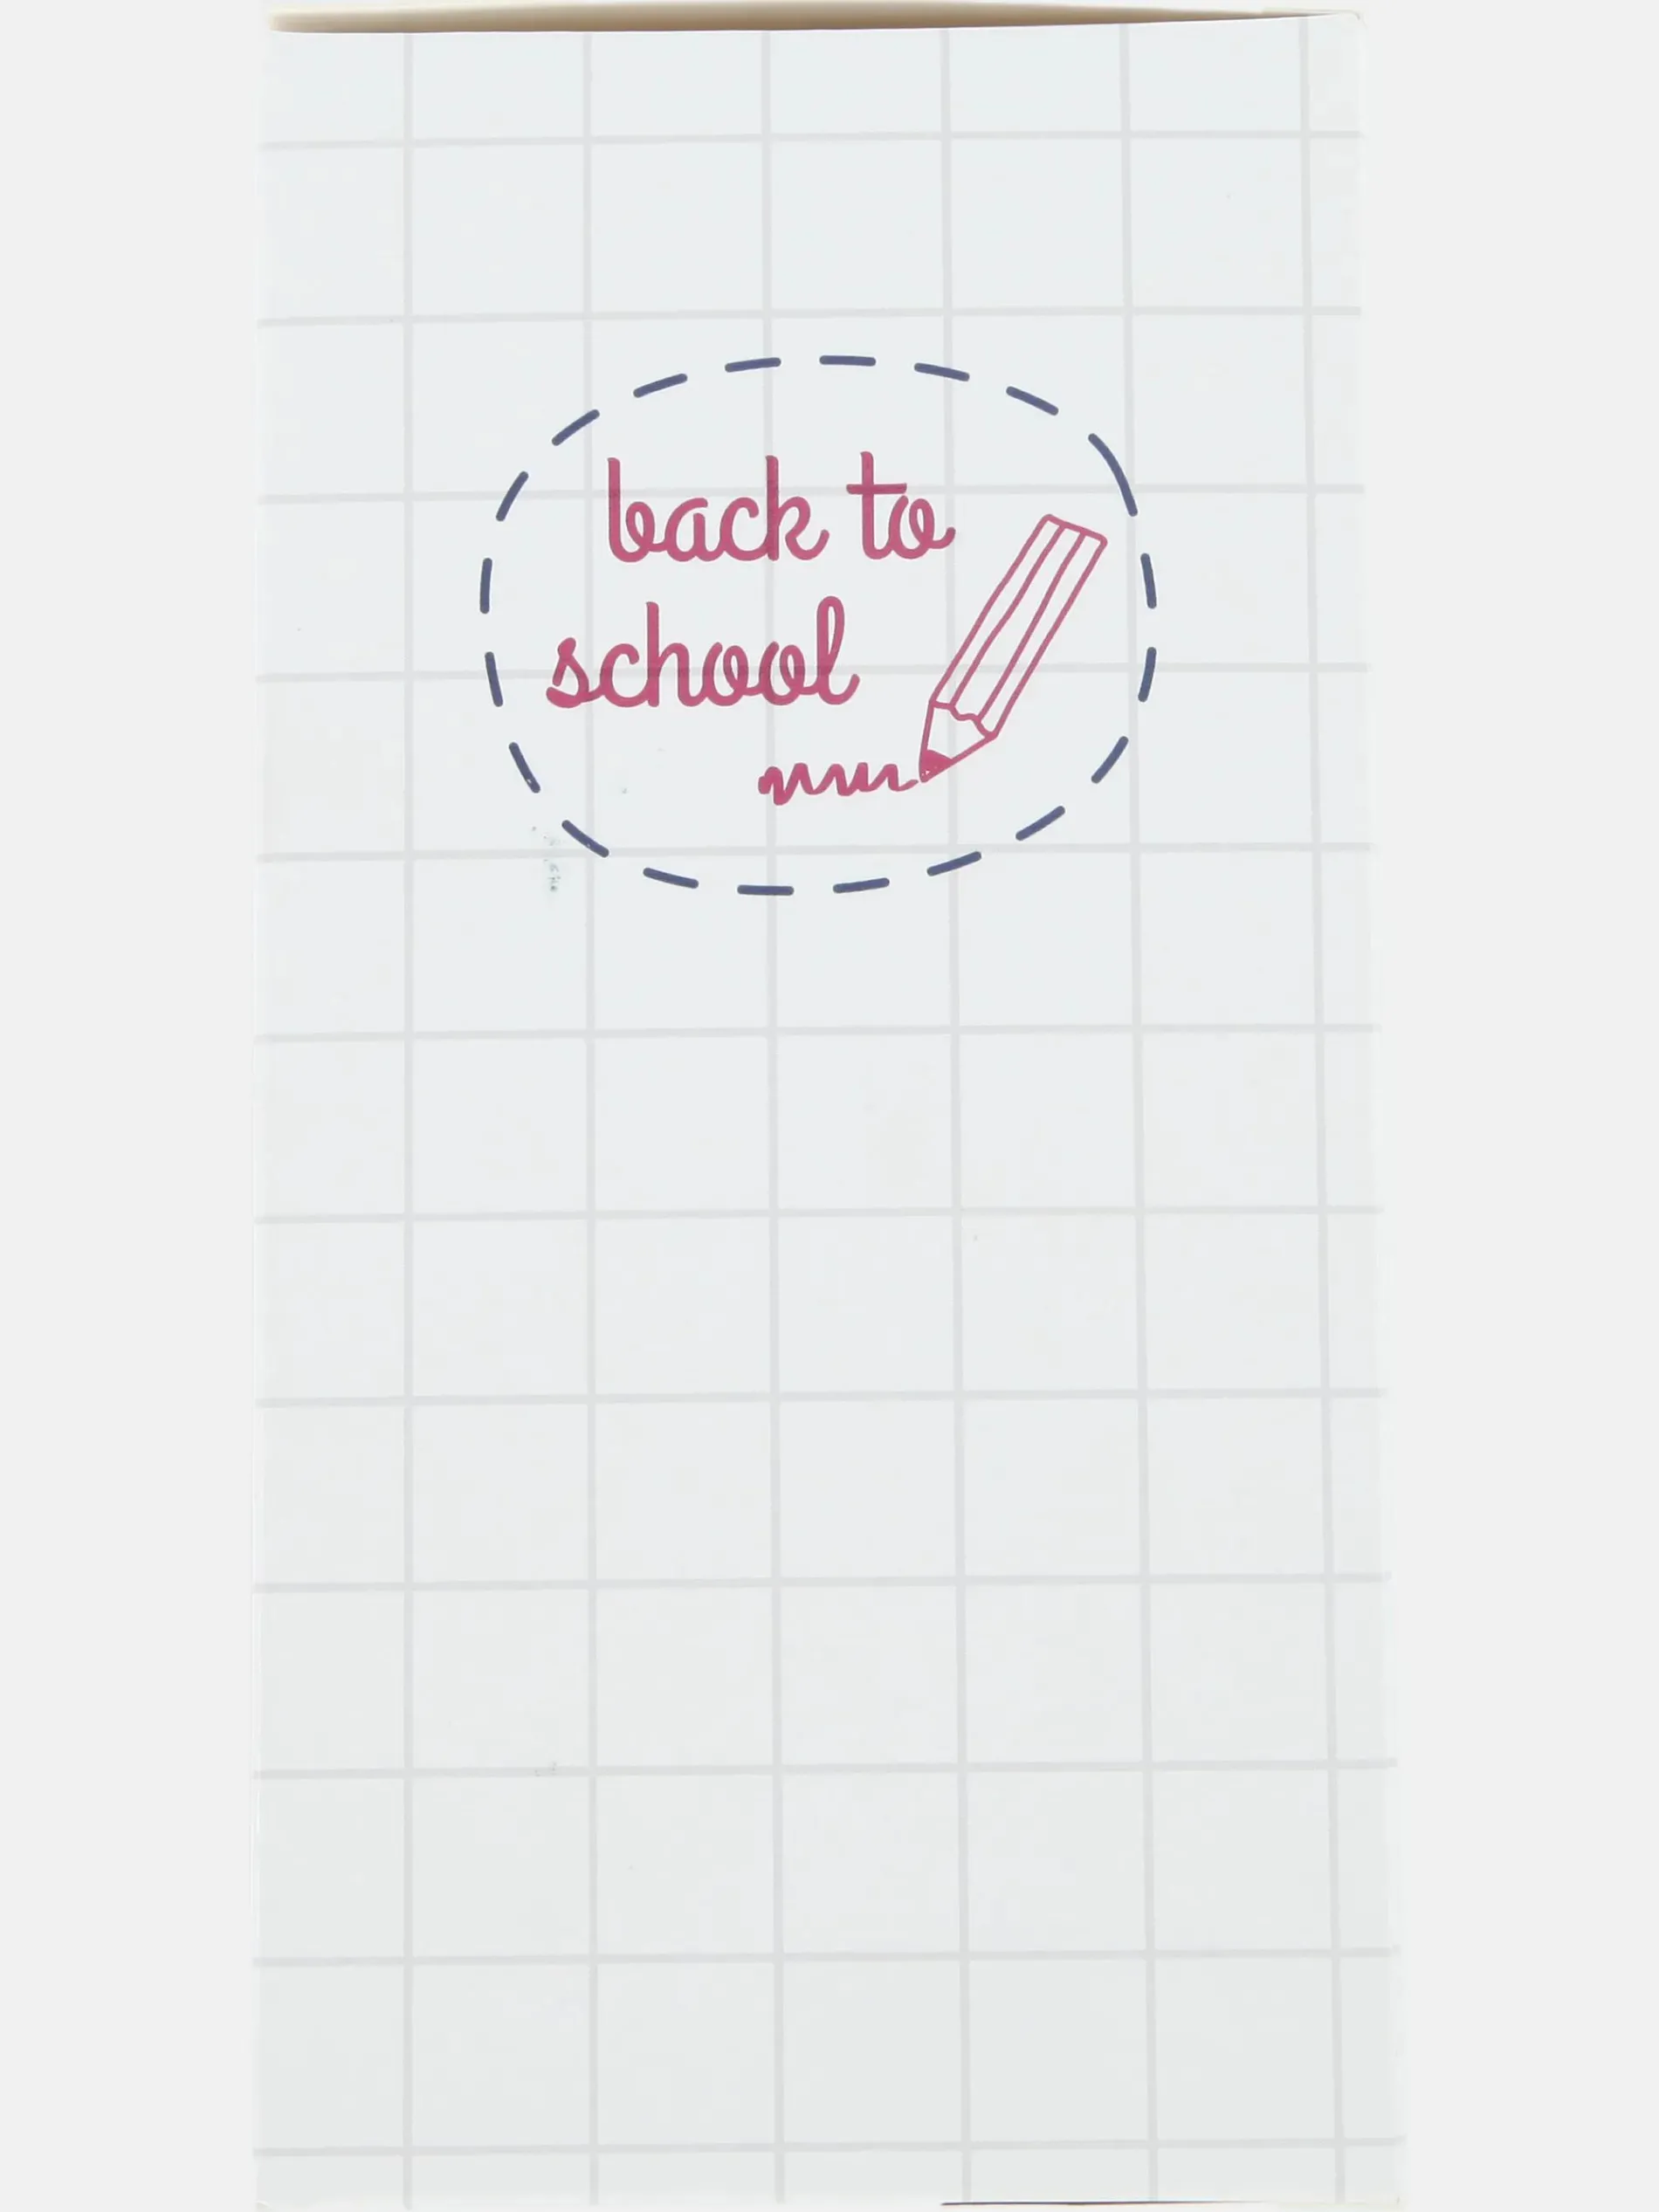 back to
school